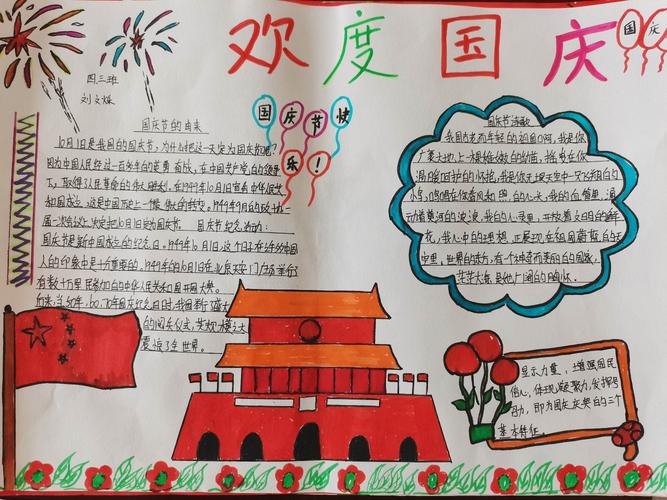 欢度国庆
国庆
四三班
刘文
国庆节快
乐！
国庆节的由来
10月1日是我国的国庆节，为什么把这一天定为国庆节呢？
因为中国人民经过一百多年的英勇奋战，在中国共产党的领导
下，取得了人民革命的伟大胜利，在1949年10月1日宣告中华人民共
和国成立，这是中国历史上一个最伟大的转变。1949年9月的政协
一次会议上决定把10月1日定为国庆节。 国庆节纪念活动：
国庆节是新中国成立的纪念日。1949年10月1日这个日子在许多中国
人的印象中是十分重要的，1949年的10月1日在北京天安门广场举行
有数十万军民参加的中华人民共和国开国大典。
年，60，70年国庆纪念日时，我国都
的阅兵仪式，
震惊了全世界。
国庆节诗歌
我因古老而年轻的祖国啊，我是你
广袤大地上一棵
温暖呵护的怀抱，我是你天空中一只
的心头，我的血管里，涌
动着黄河的波浪，我的心灵里，开放着文明的
花，我心中的理想，正展现在祖国蔚蓝的天
空里，世界的东方，有个神奇而美丽的国家，
茫茫大海是她广阔的胸怀。
显示力量，增强国民
信心，体现凝聚力，发挥号
召力，即为国庆庆典的三个
基本特征。